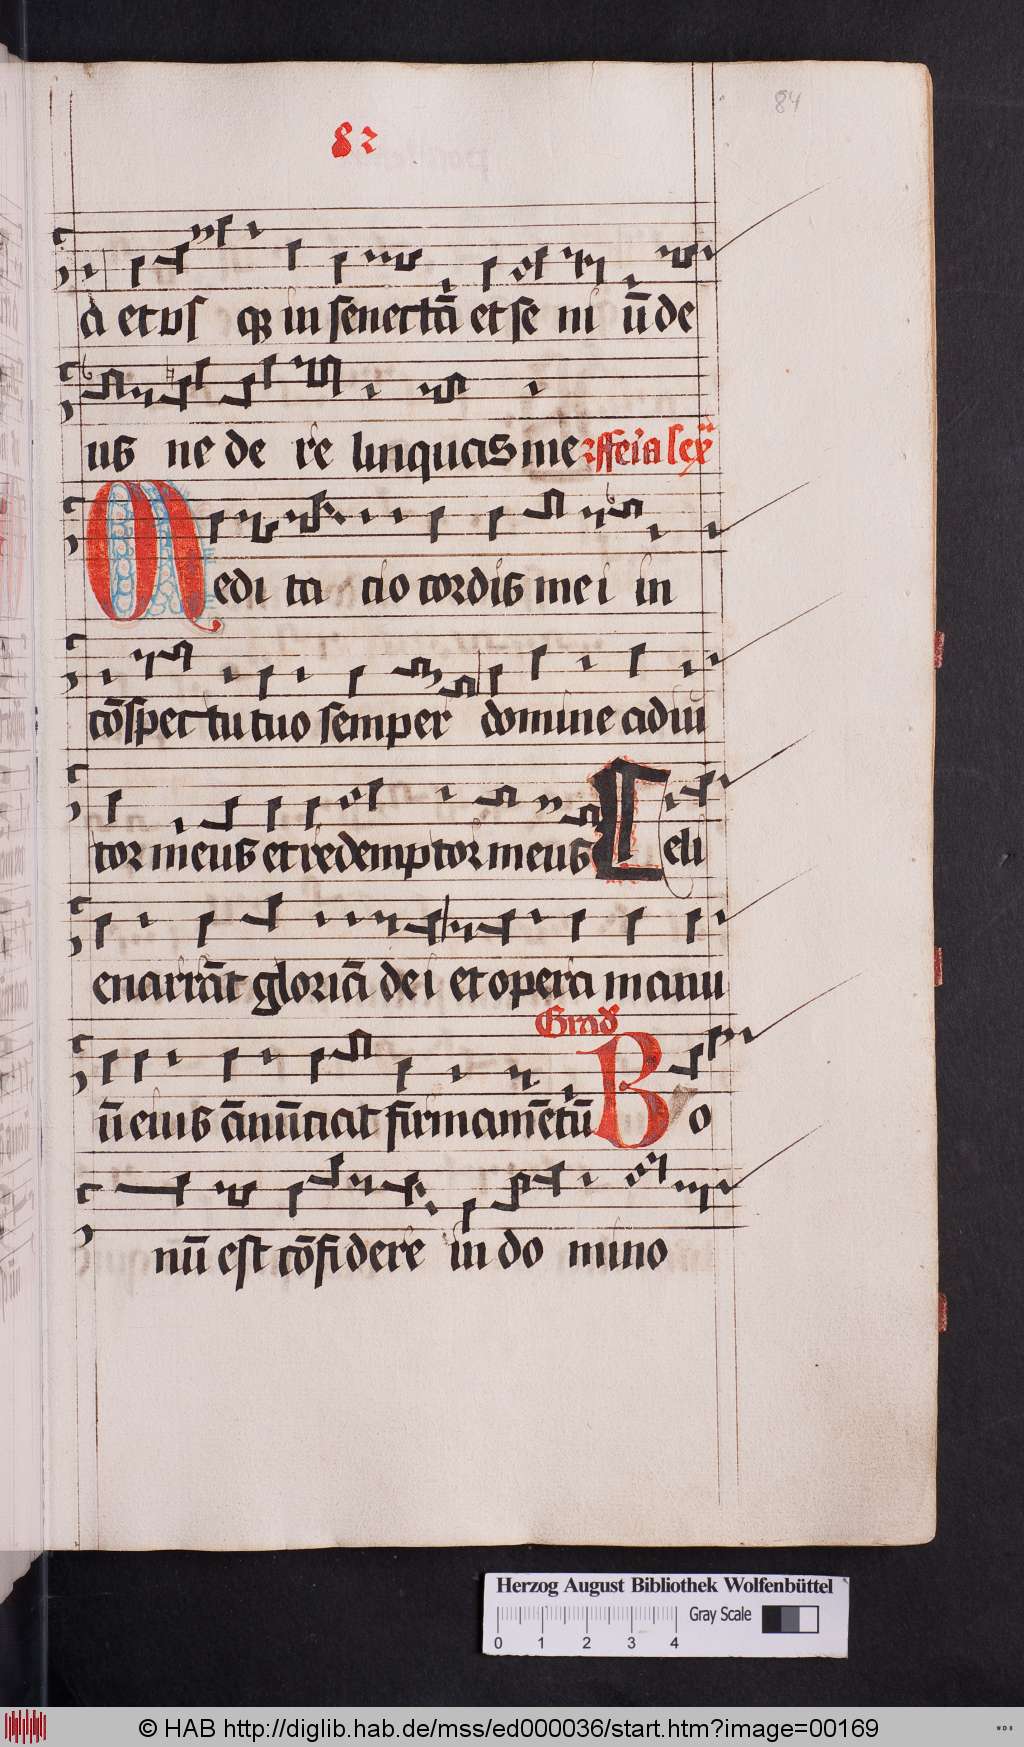 82
84
a et vs qz in senectā et se ni ū de
us ne de re linquas me
Medi ta cio cordis me i in
cōspectu tuo semper domine adiu
tor meus et redemptor meus Celi
enarrāt gloriā de i et opera manu
ū eius ānūciat firmamētū Bo
Grad
nū est cōfidere in do mino
Herzog August Bibliothek Wolfenbüttel
Gray Scale
0 1 2 3 4
© HAB http://diglib.hab.de/mss/ed000036/start.htm?image=00169